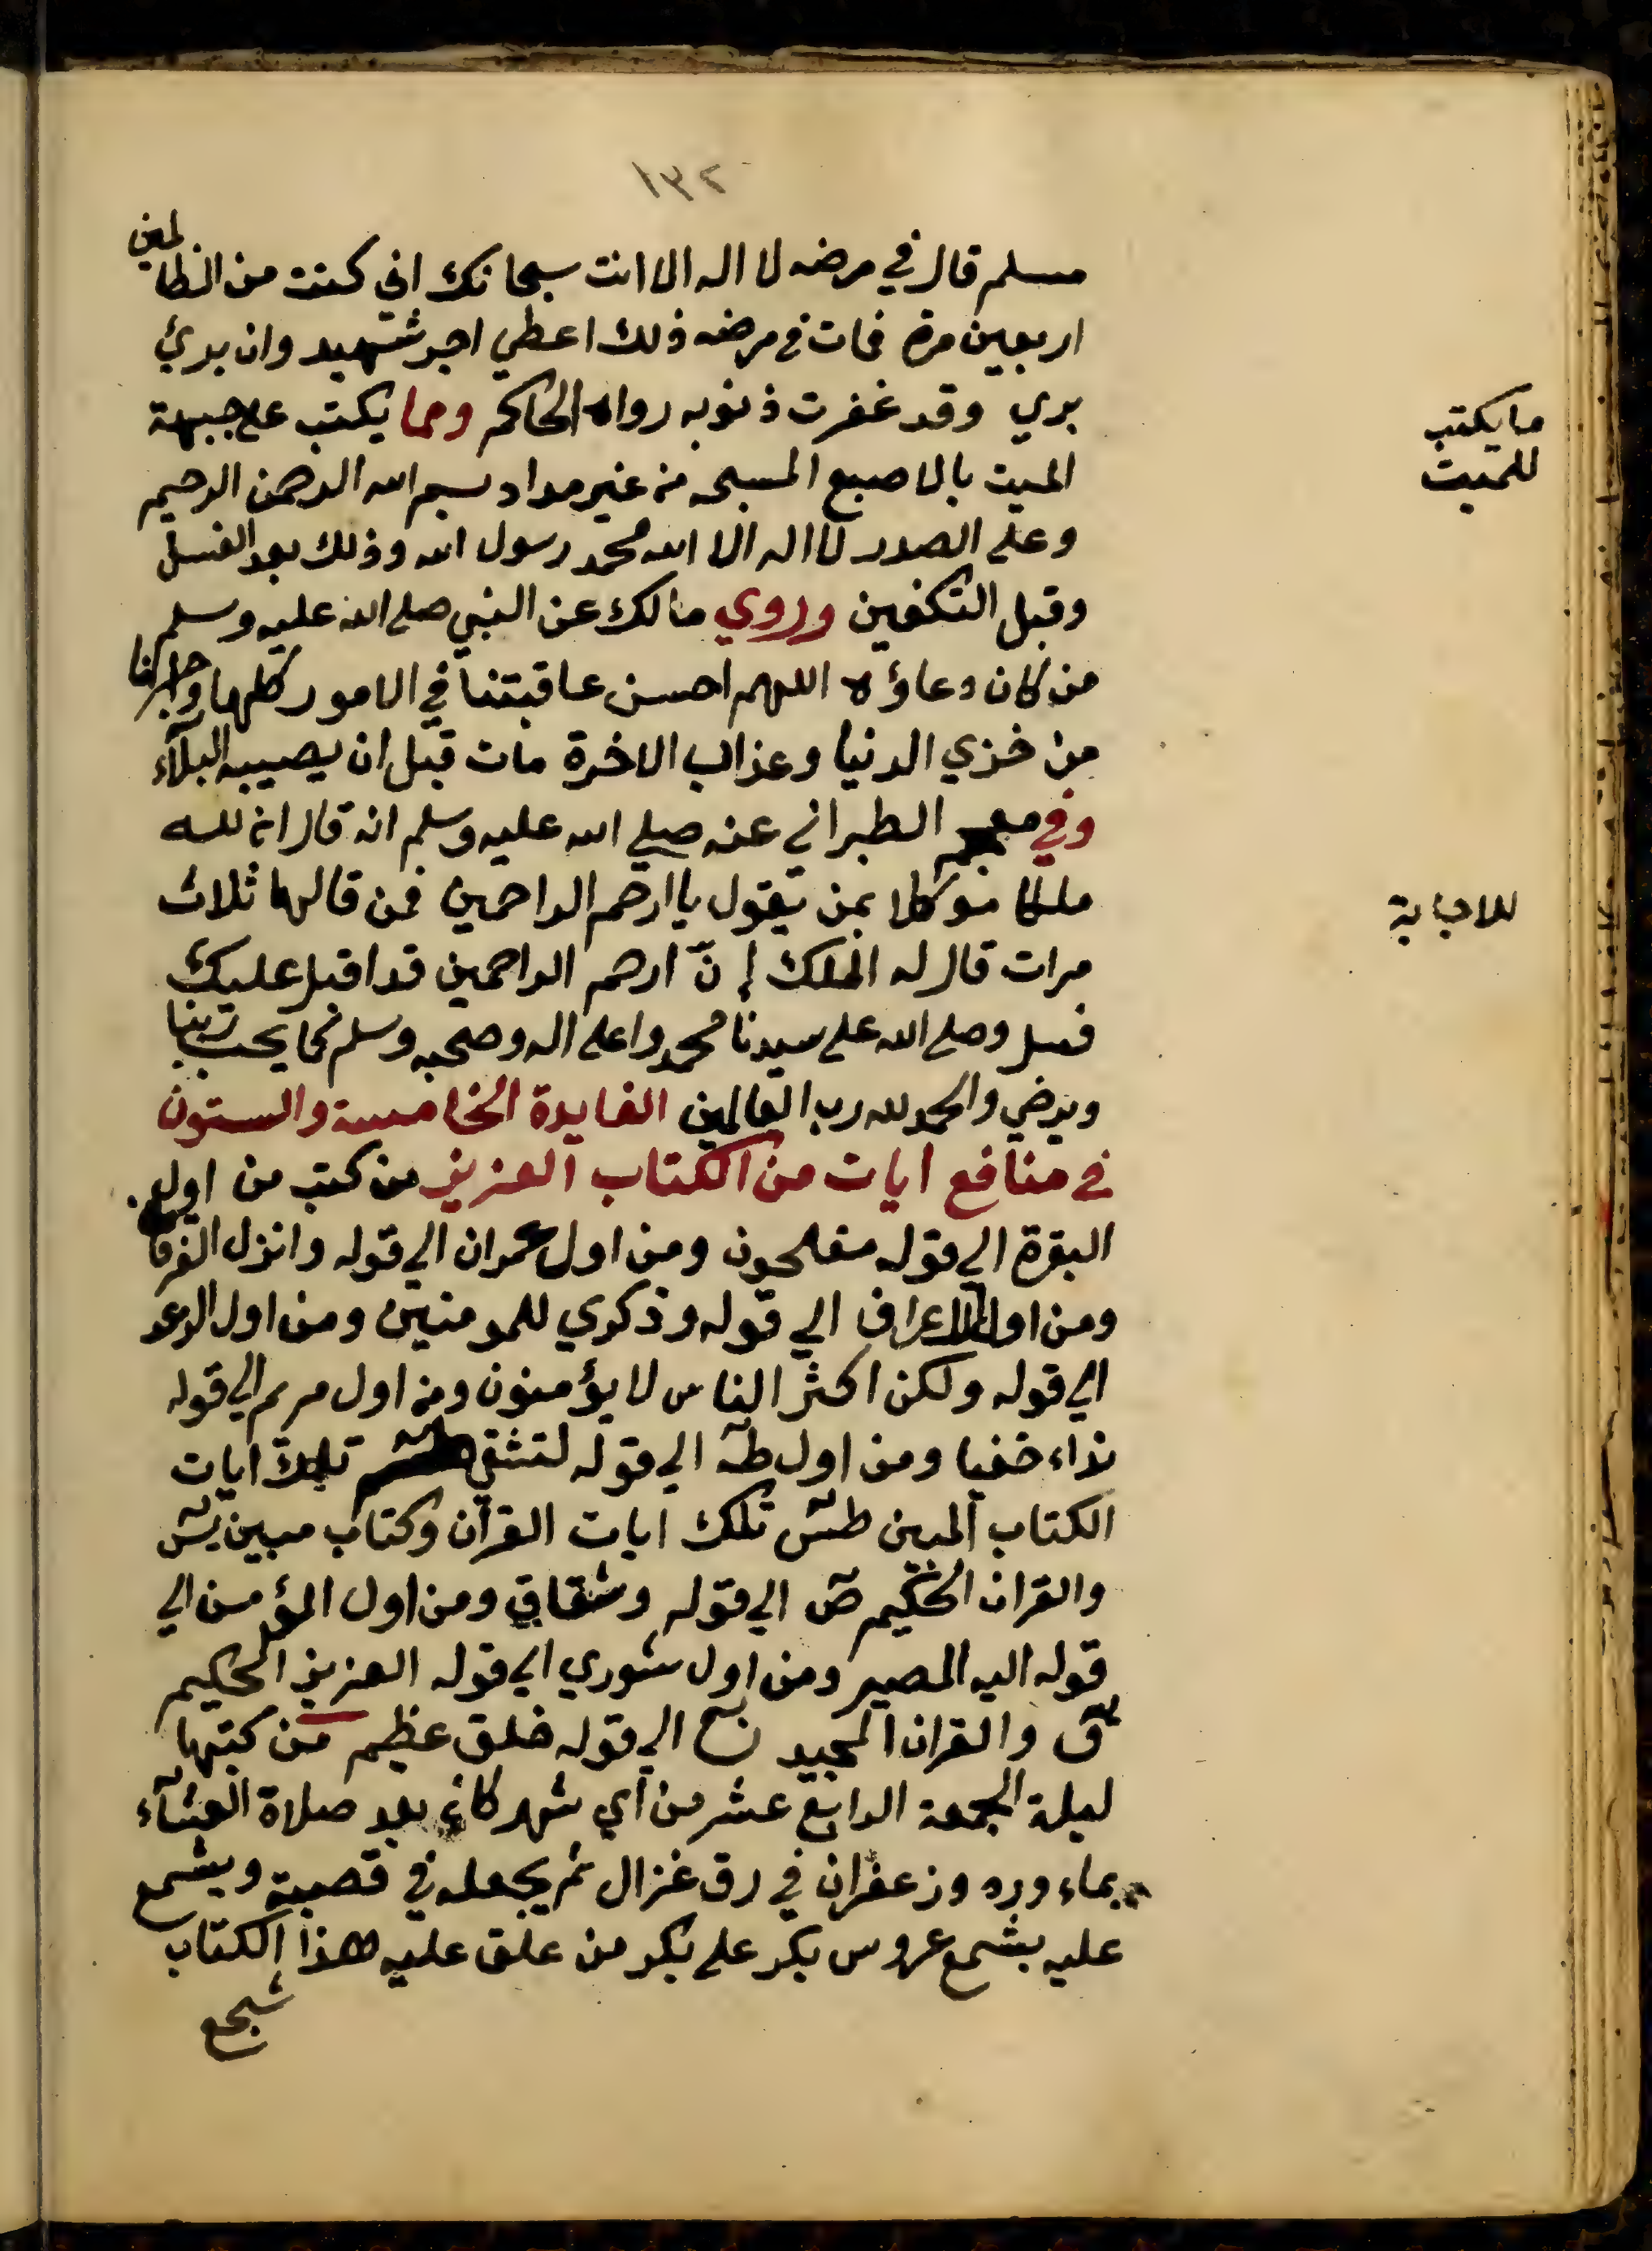 ١٣٢
مسلم قال في مرضه لا اله الا انت سبحانك اني كنت من الظالمين
اربعين مرة فمات في مرضه ذلك اعطي اجر شهيد وان بريئ
بري وقد غفرت ذنوبه رواه الحاكم ومما يكتب علي جبهة
ما يكتب
للميت
الميت بالاصبع المسبحه من غير مداد بسم الله الرحمن الرحيم
وعلي الصدر لا اله الا الله محمد رسول الله وذلك بعد الغسل
وقبل التكفين وروي مالك عن النبي صلي الله عليه وسلم
من كان دعاؤه اللهم احسن عاقبتنا في الامور كلها واجرنا
من خزي الدنيا وعذاب الاخرة مات قبل ان يصيبه البلآء
وفي معجم الطبراني عنه صلي الله عليه وسلم انه قال ان لله
ملكا موكلا بمن يقول يا ارحم الراحمين فمن قالها ثلاث
للاجابة
مرات قال له الملك إنّ ارحم الراحمين قد اقبل عليك
فسل وصلي الله علي سيدنا محمد واعلي اله وصحبه وسلم كما يحب ربنا
ويرضي والحمد لله رب العالمين الفايدة الخامسة والستون
في منافع ايات من الكتاب العزيز من كتب من اول
البقرة الي قوله مفلحون ومن اول عمران الي قوله وانزل الفرقان
ومن اول الاعراف الي قوله وذكري للمومنين ومن اول الرعد
الي قوله ولكن اكثر الناس لا يؤمنون ومن اول مريم الي قوله
نداء خفيا ومن اول طه الي قوله لتشقي طسم تلك ايات
الكتاب المبين طس تلك ايات القرآن وكتاب مبين يس
والقران الحكيم ص الي قوله وشقاق ومن اول المؤمن الي
قوله اليه المصير ومن اول شوري الي قوله العزيز الحكيم
ق والقران المجيد ن الي قوله خلق عظيم من كتبها
ليلة الجمعة الرابع عشر من اي شهر كان بعد صلاة العشآء
بماء ورد وزعفران في رق غزال ثم يجعله في قصبة ويشمع
عليه بشمع عروس بكر علي بكر من علق عليه هذا الكتاب
شجع